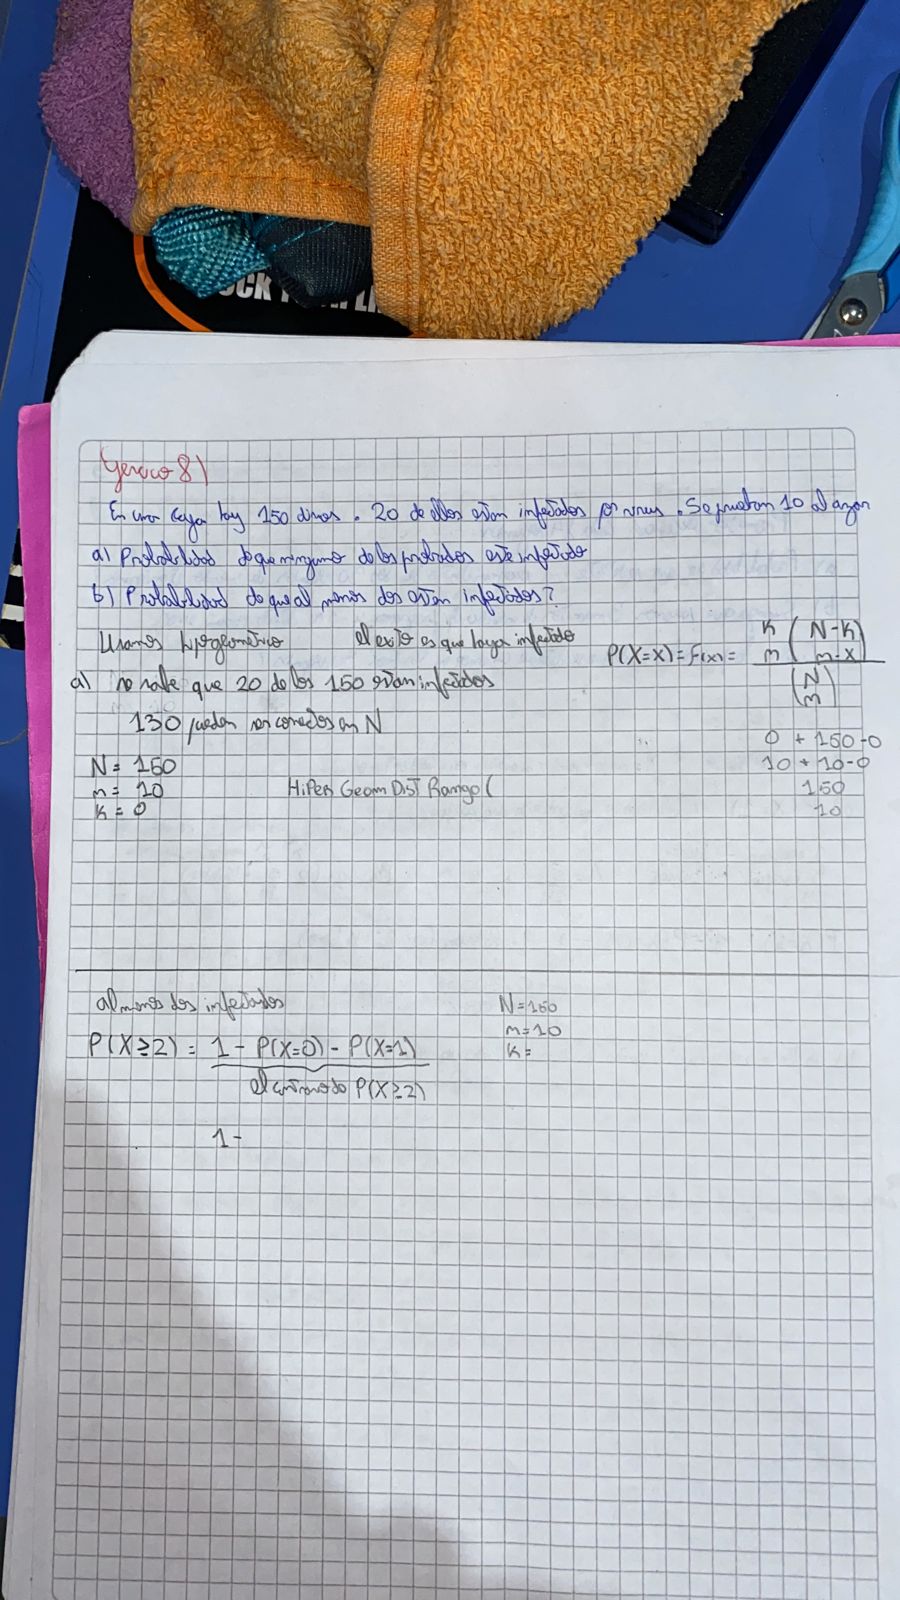 8)
En una caja hay 150 discos. 20 de ellos están infectados por virus. Se prueban 10 al azar
a) Probabilidad de que ninguno de los probados esté infectado
b) Probabilidad de que al menos dos estén infectados?
Usamos hipogeométrica el exito es que haya infectado
P(X=x)=f(x)= K (N-K)
m m-x
(N
m)
a) se sabe que 20 de los 150 están infectados
130 pueden ser en N
N= 150
m= 10
K= 0
HiPer Geom DisT Rango(
0 + 150-0
10 + 10-0
150
10
al menos dos infectados
P(X≥2) = 1 - P(X=0) - P(X=1)
el contrario de P(X≥2)
1-
N=150
m=10
K=